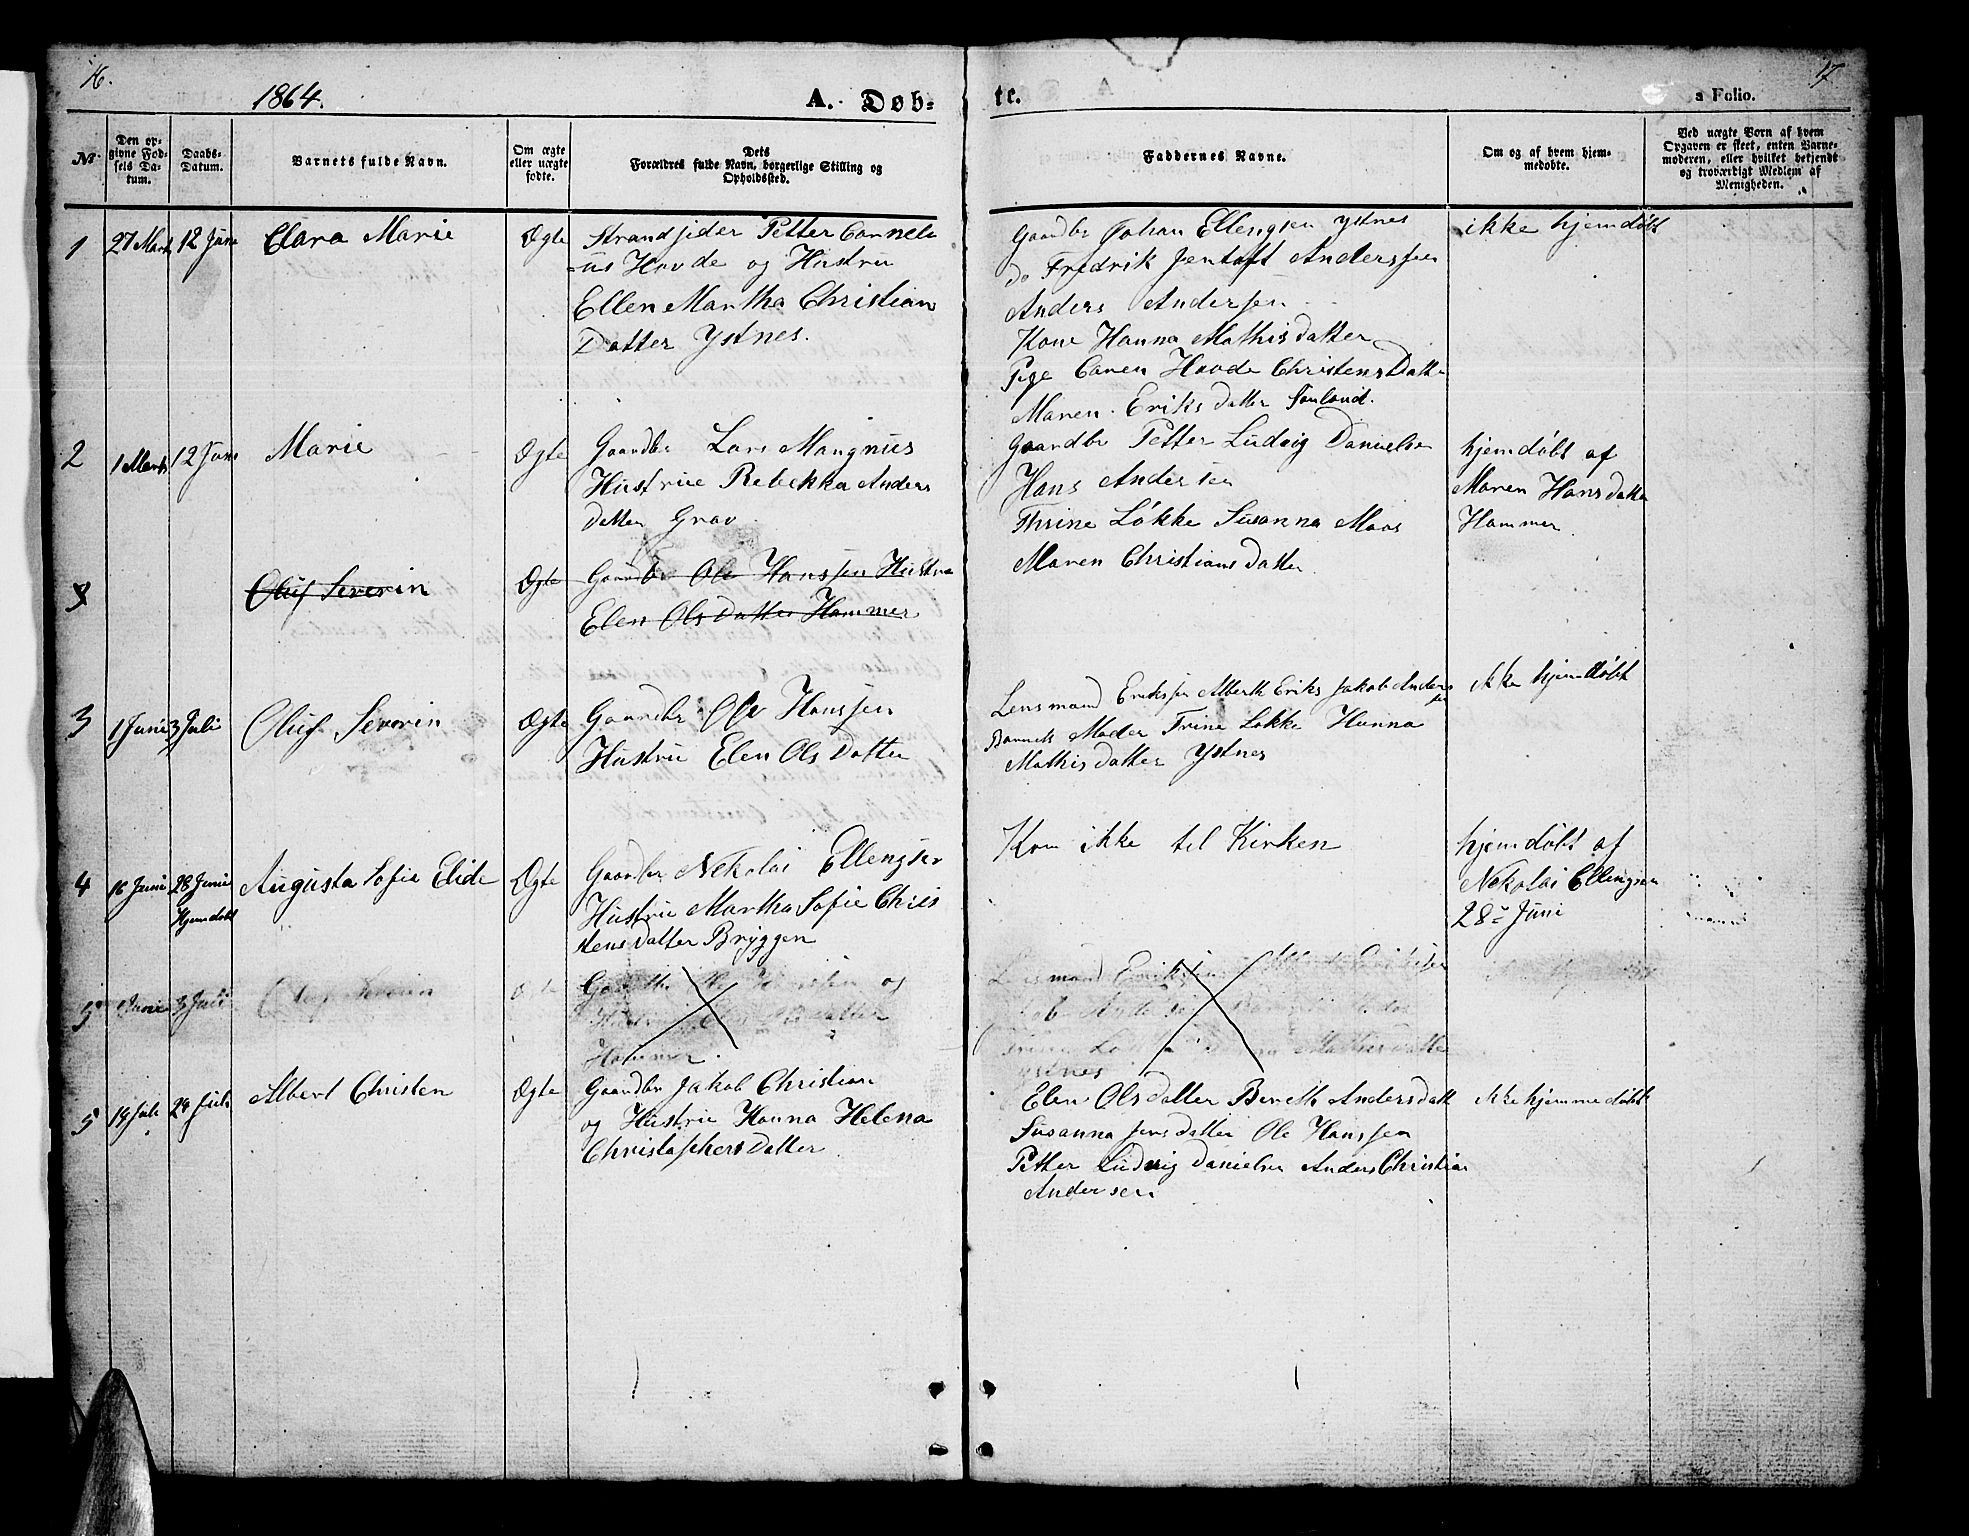 16.
1864.
A. Døb-
te.
a Folio.
17
№.
Den op-
givne Fød-
sels Da-
tum.
Daabs-
Datum.
Barnets fulde Navn.
Om ægte
eller uægte
fødte.
Dets
Forældres fulde Navn, borgerlige Stilling og
Opholdssted.
Faddernes Navne.
Om og af hvem hjem-
medøbte.
Ved uægte Børn af hvem
Opgaven er skeet, enten Barne-
moderen, eller hvilket bekjendt
og troværdigt Medlem af
Menigheden.
1
27 Marts
12 Juni
Clara Marie
Ægte
Strandsider Petter Corneli
-us Havde og Hustru
Ellen Martha Christian
Datter Ystnes.
Gaardbr Johan Ellengsen Ystnes
do Fredrik Jentoft Anderssen
Anders Andersen
Kone Hanna Mathisdatter
Pige Caren Havde ChristensDatt
Maren Eriksdatter
ikke hjemdøbt
2
1 Marts
12 Juni
Marie
Ægte
Gaardbr Lars Mangnus
Hustrue Rebekka Anders
datter Grav
Gaardbr Petter Ludvig Danielse
Hans Andersen
Thrine Løkke Susanna Moos
Maren Christiansdatter
hjemdøbt af
Maren Hansdatte
Hammer
3
Oluf Severin
Ægte
Gaardbr Ole Hanssen Hustru
Elen OlsDatter Hammer
3
1 Juni
3 Juli
Oluf Severin
Ægte
Gaardbr Ole Hanssen
Hustru Elen OlsDatter
Lensmand Erikssen Alberth Eriks Jakob Anders
sen
Barnets Moder Trine Løkke Hanna
Mathisdatter Ystnes
ikke hjemdøbt
4
16 Juni
28 Junie
Hjemdøbt
Augusta Sofie Elide
Ægte
Gaardbr Nekolai Ellengsen
Hustrue Martha Sofie Chris
tensDatter Bryggen
Kom ikke til Kirken
hjemdøbt af
Nekolai Ellengsen
28de Juni
5
Junie
3 Juli
Oluf Severin
og
Hustrue
Hammer.
Lensmand Erikssen
Trine
Ystnes
5
19 Juli
24 Juli
Albert Christen
Ægte
Gaardbr Jakob Christian
og Hustrue Hanna Helena
ChristophersDatter
Elen OlsDatter Bereth Andersdatt
Susanna Jensdatter Ole Hanssen
Petter Ludvig Danielsen Anders Christian
Andersen
ikke hjemmedøbt